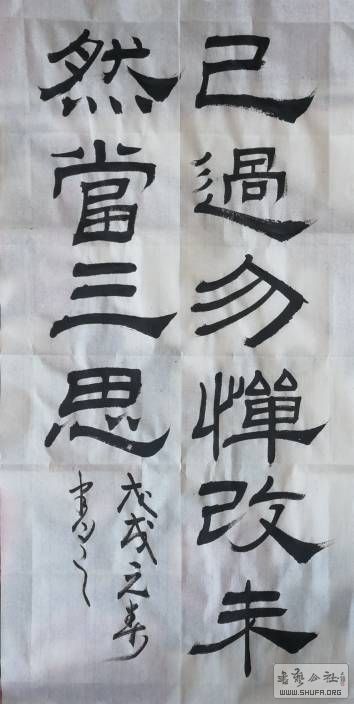 已過勿憚改未
然當三思
戊戌之春
書
WWW.SHUFA.ORG